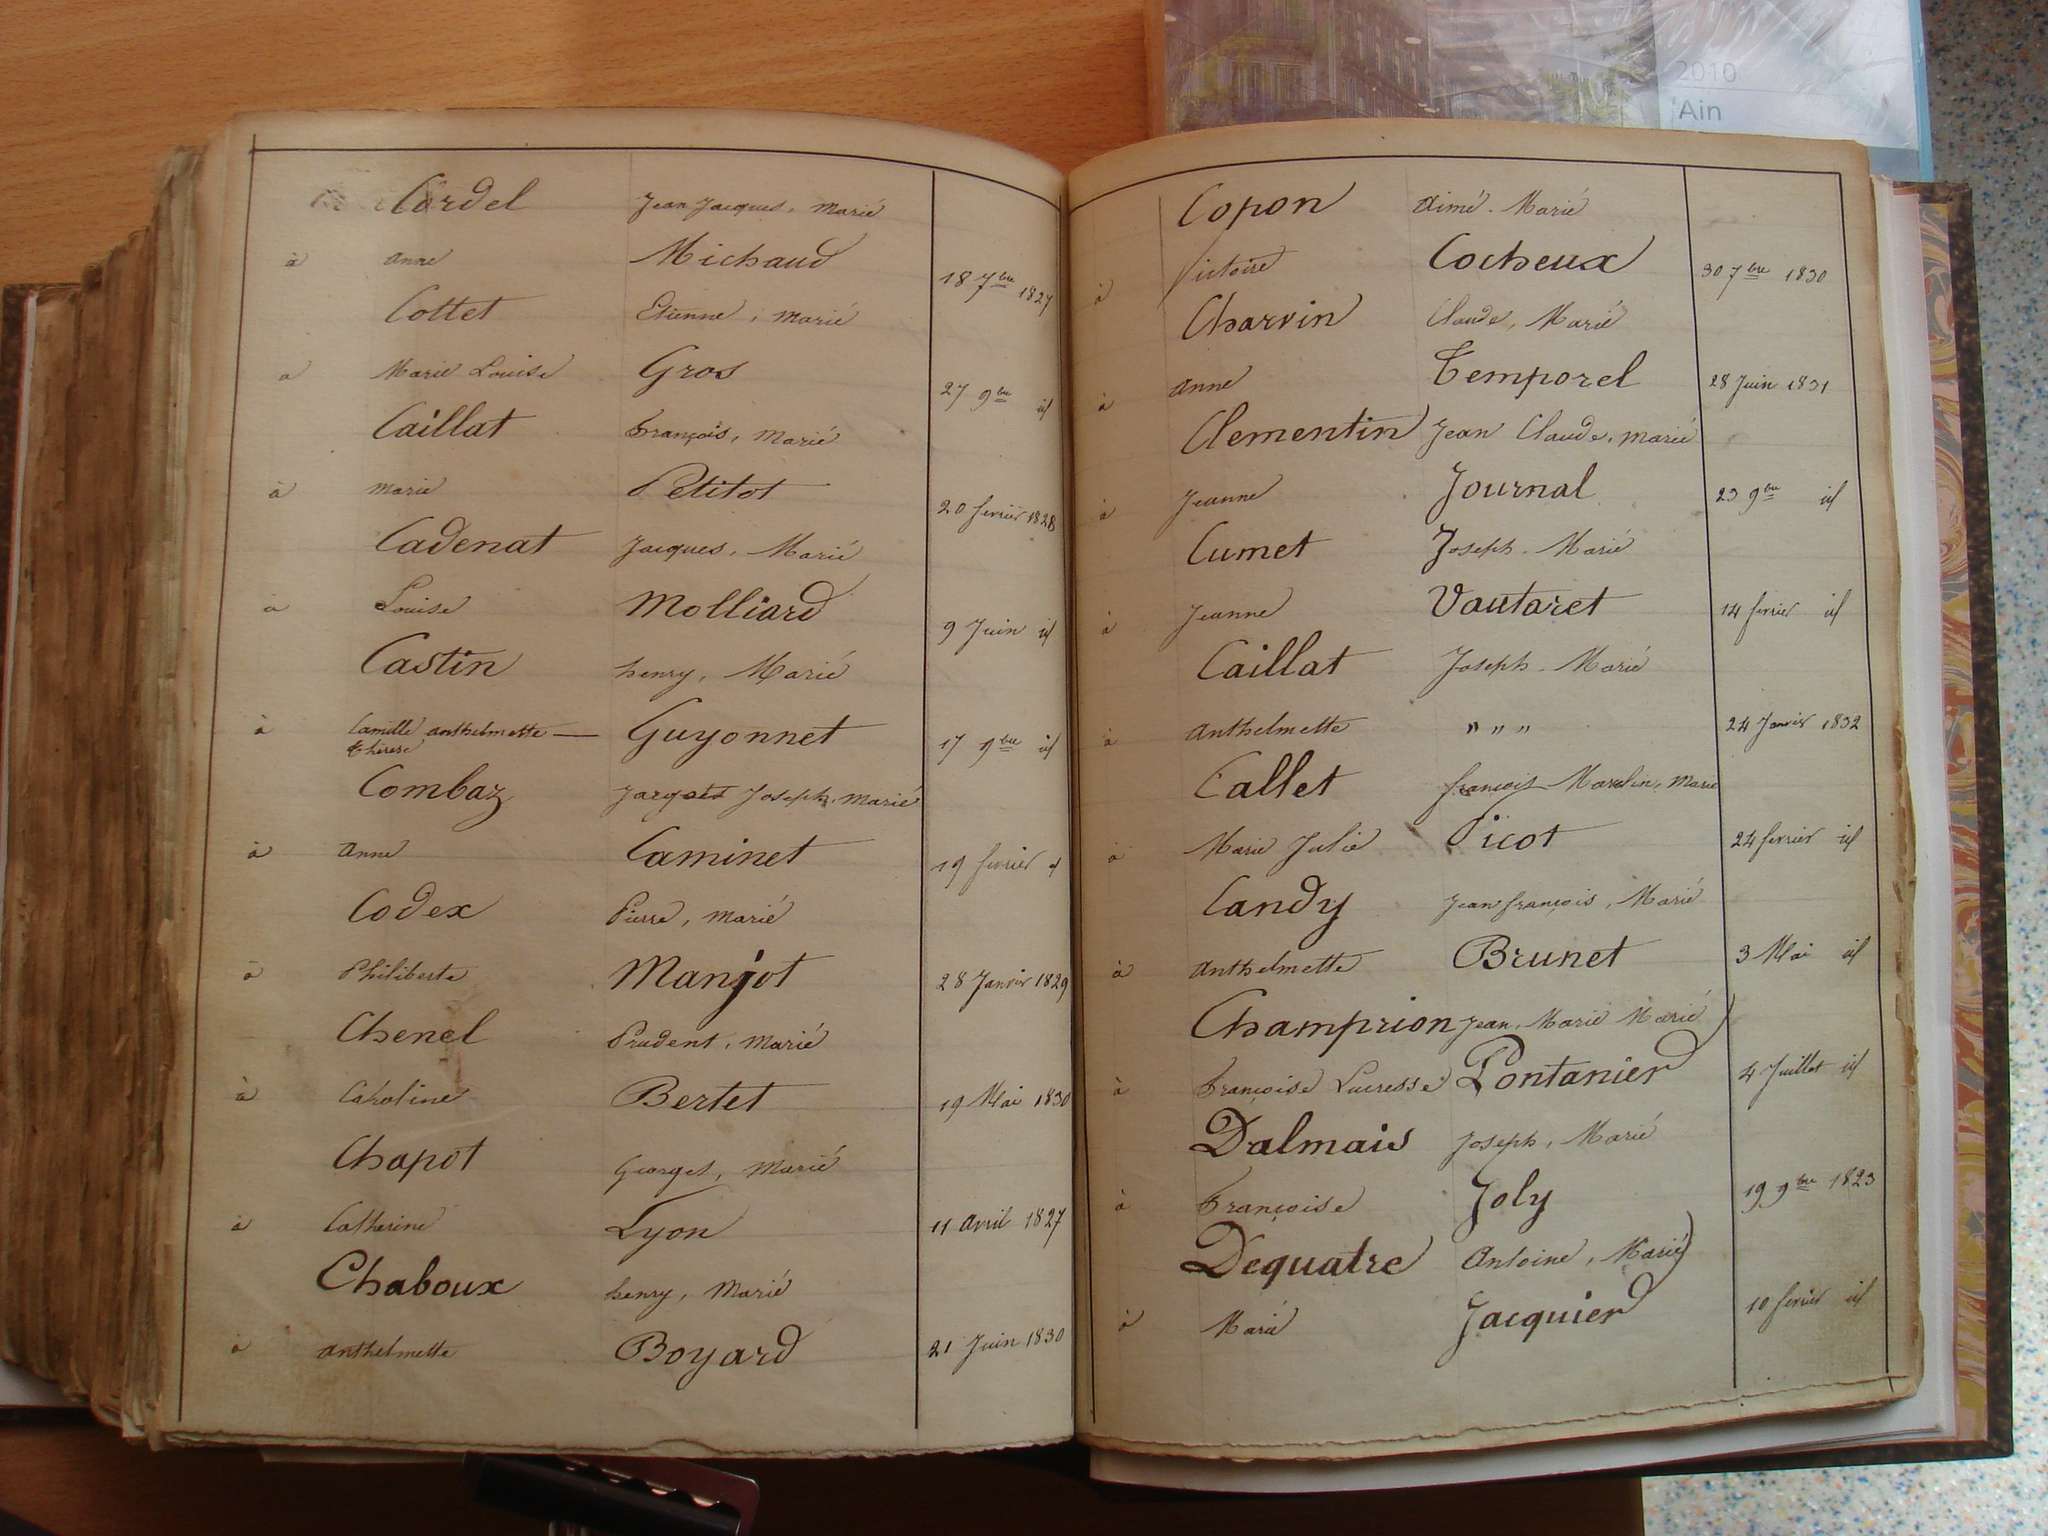 2010
Ain
Cordel Jean Jacques, Marié
à Anne Michaud 18 7bre 1827
Cottet Etienne, Marié
a Marie Louise Gros 27 9bre id
Caillat François, Marié
à Marie Petitot 20 fevrier 1828
Cadenat Jacques, Marié
à Louise Molliard 9 Juin id
Castin henry, Marié
à Camille anthelmette — Guyonnet 17 9bre id
Therese
Combaz Jacques Joseph, Marié
à Anne Caminet 19 fevrier id
Codex Pierre, Marié
à Philiberte Manjot 28 Janvier 1829
Chenel Prudent, Marié
à Caroline Bertet 19 Mai 1830
Chapot Georges, Marié
à Catherine Lyon 11 avril 1827
Chaboux henry, Marié
à anthelmette Boyard 21 Juin 1830
Copon Aimé. Marié
à Victoire Cocheux 30 7bre 1830
Charvin Claude, Marié
à Anne Temporel 28 Juin 1831
Clementin Jean Claude, Marié
à Jeanne Journal 23 9bre id
Cumet Joseph. Marié
à Jeanne Vautaret 14 fevrier id
Caillat Joseph. Marié
à Anthelmette " " " 24 Janvier 1832
Callet françois Marcelin, Marié
à Marie Julie Picot 24 fevrier id
Candy Jean françois, Marié
à Anthelmette Brunet 3 Mai id
Champrion Jean, Marie Marié
à Françoise Lucresse Pontanier 4 Juillet id
Dalmais Joseph, Marié
à Françoise Joly 19 9bre 1823
Dequatre Antoine, Marié
à Marie Jacquier 10 fevrier id